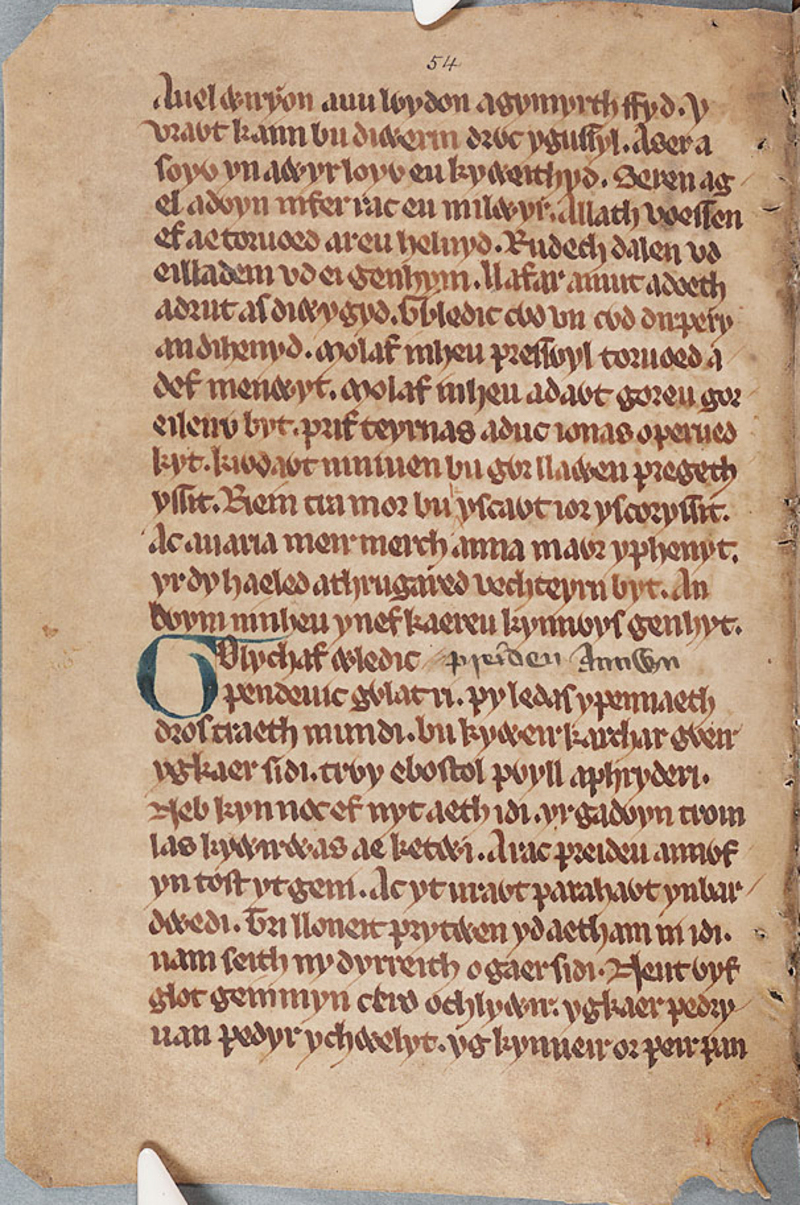 54
Auel dwryon auu lỽydon agymyrth ffyd. y
vraỽt kann bu diwerin drỽc ygussyl. Aser a
soyỽ yn awyr loyỽ eu kyweithyd. Seren ag
el adoyn infer rac eu milwyr. Allath voessen
ef ae toruoed areu helnyd. Rudech dalen vd
eilladem vd ei genhym. llafar amut adoeth
adrut as diwygyd. Gỽledic cỽd vn cỽd dirpery
an dihenyd. Molaf inheu pressỽyl toruoed a
def menwyt. Molaf inheu adaỽt goreu gor
eilenỽ byt. prif teyrnas aduc ionas operued
kyt. kiỽdaỽt niniuen bu gỽr llawen pregeth
yssit. Riein tra mor bu yscaỽt ior yscoryssit.
Ac auaria meir merch anna maỽr yphenyt.
yr dy haeled athrugared vechteyrn byt. An
bỽym ninheu ynef kaereu kynnỽys genhyt.
Golychaf wledic preiden Annỽn
pendeuic gỽlat ri. py ledas ypennaeth
dros traeth mundi. bu kyweir karchar gỽeir
ygkaer sidi. trỽy ebostol pỽyll aphryderi.
Neb kyn noc ef nyt aeth idi. yr gadỽyn trom
las kywirwas ae ketwi. A rac preideu annỽf
yn tost yt geni. Ac yt uraỽt parahaỽt ynbar
dwedi. Tri lloneit prytwen yd aetham ni idi.
nam seith ny dyrreith o gaer sidi. Neut ỽyf
glot geinmyn cerd ochlywir. ygkaer pedry
uan pedyr ychwelyt. yg kynneir or peir pan